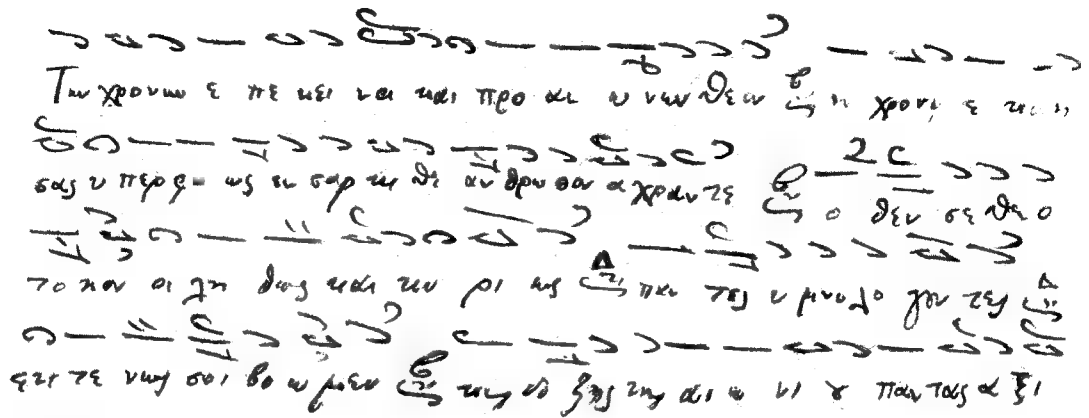 Των χρονων ε πε κει να και προ αι ω νων θεον εν χρονω ε κυη
σας υ περ φυ ως εν σαρ κι θε αν θρω πον α χραν τε ο θεν σε θε ο
το κον α λη θως και κυ ρι ως παν τες υ μνο λο γουν τες
εκ τε νως σοι βο ω μεν της δο ξης της αι ω νι ου παν τας α ξι